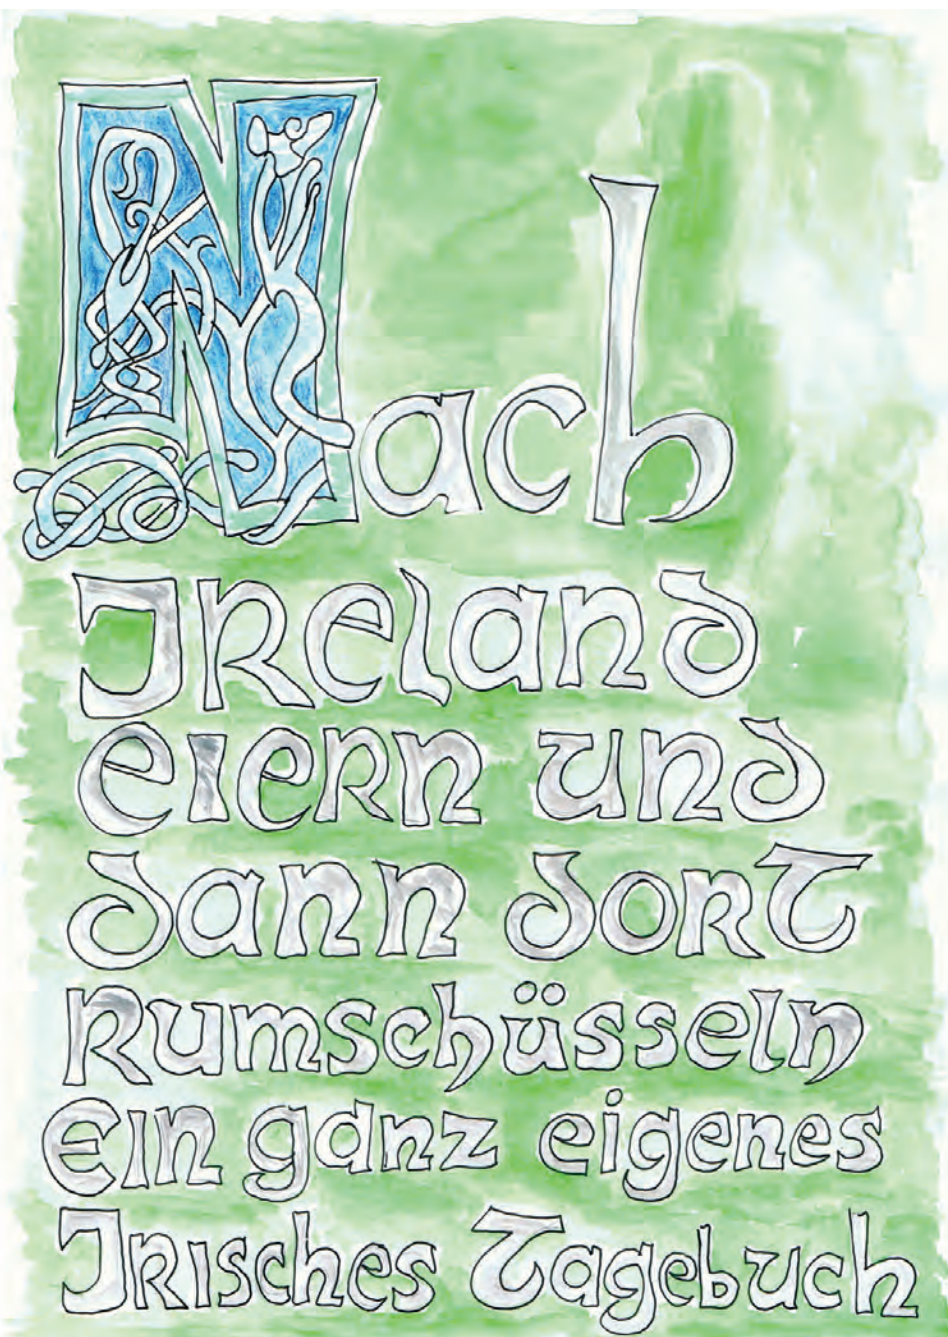 Nach
Ireland
eiern und
dann dort
Rumschüsseln
Ein ganz eigenes
Irisches Tagebuch